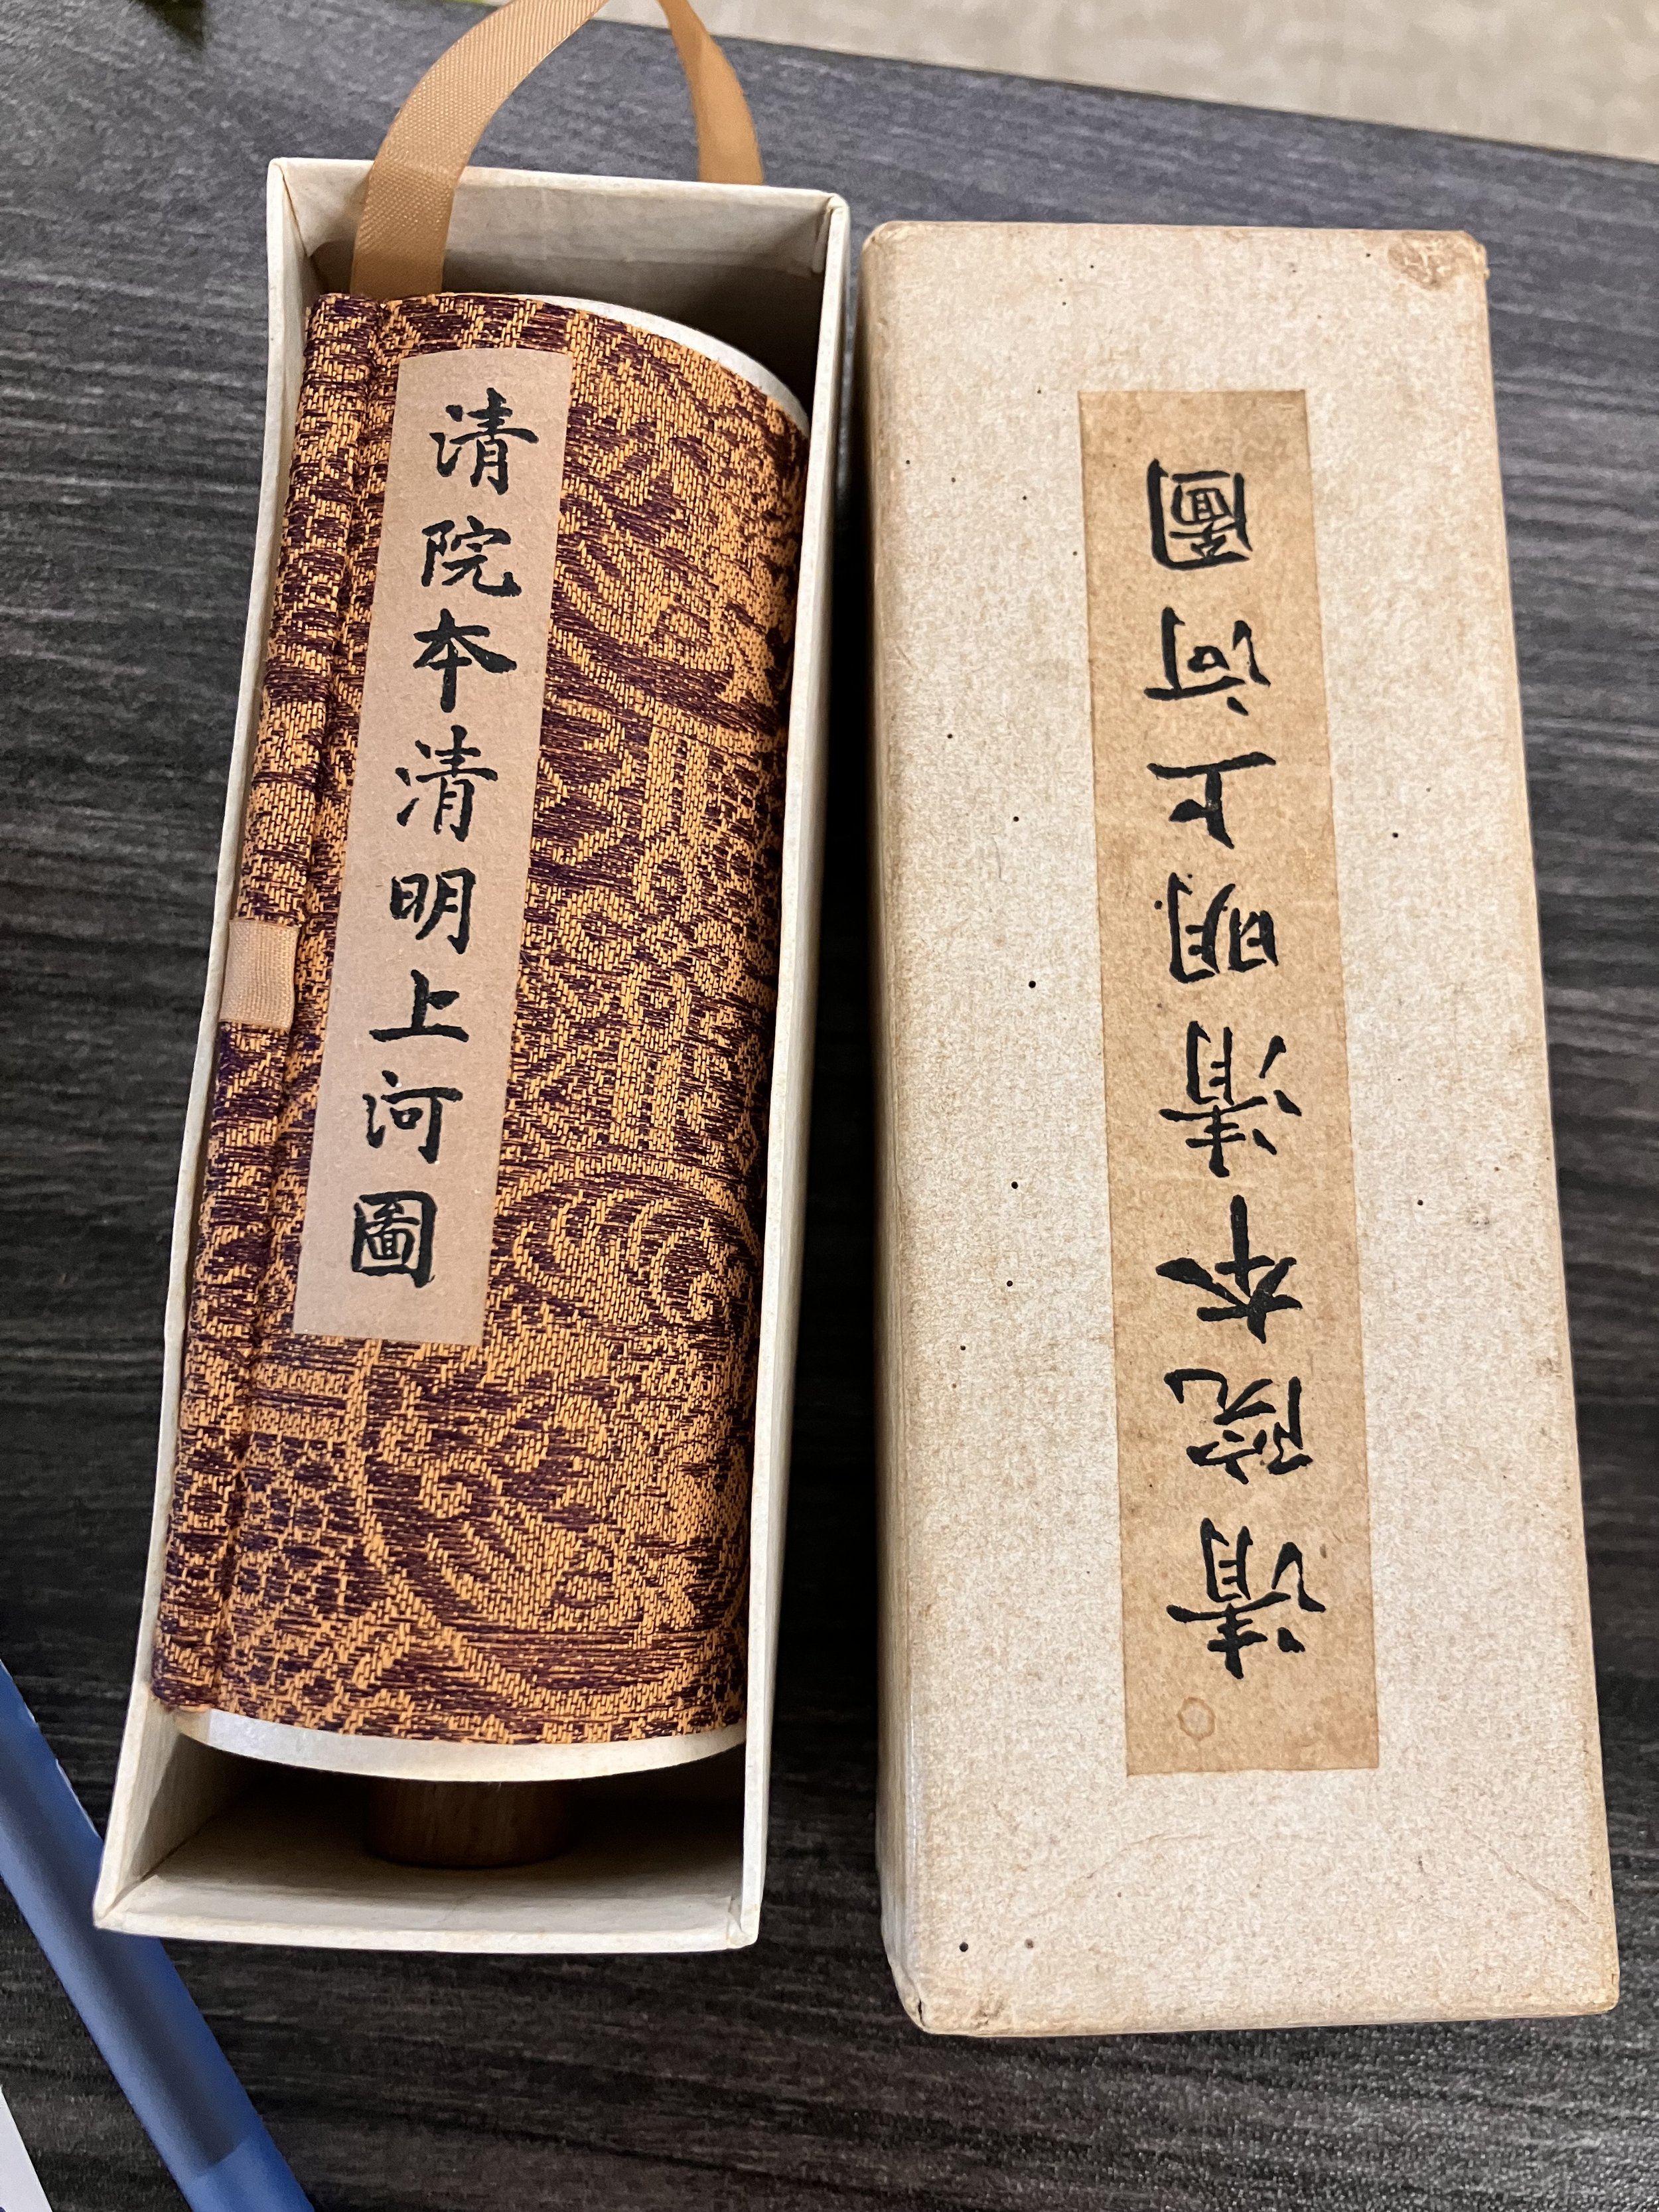 清院本清明上河圖
清院本清明上河圖